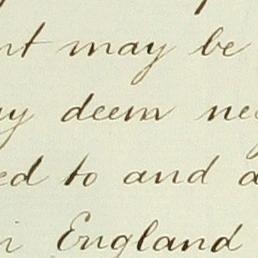 nt may be
ay deem ne
ed to and a
n England